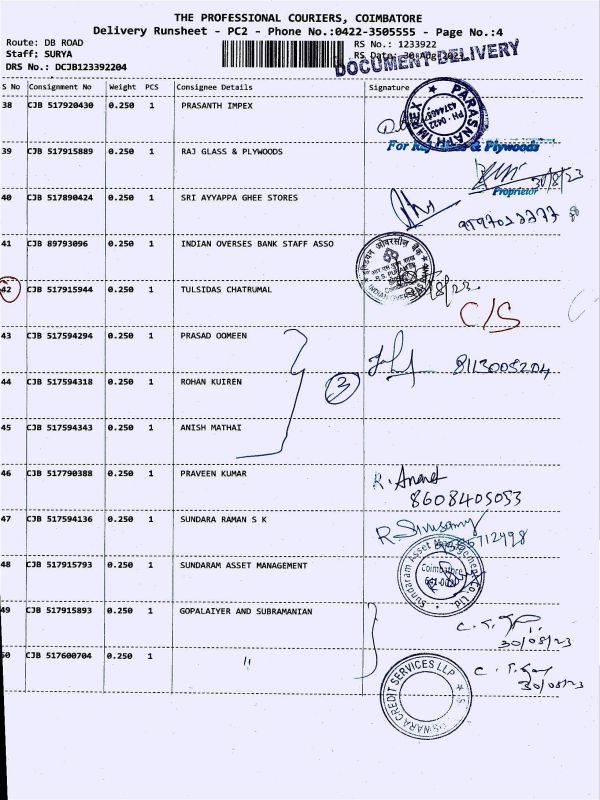 THE PROFESSIONAL COURIERS, COIMBATORE
Delivery Runsheet - PC2 - Phone No.:0422-3505555 - Page No.:4
Route: DB ROAD
Staff: SURYA
DRS No.: DCJB123392204
RS No.: 1233922
RS Date: 30-Aug-2023
DOCUMENT DELIVERY
S No Consignment No Weight PCS Consignee Details Signature
38 CJB 517920430 0.250 1 PRASANTH IMPEX
PARASNATH IMPEX
PH - 0422
39 CJB 517915889 0.250 1 RAJ GLASS & PLYWOODS
For Raj & Plywoods
30/8/23
Proprietor
40 CJB 517890424 0.250 1 SRI AYYAPPA GHEE STORES
41 CJB 89793096 0.250 1 INDIAN OVERSES BANK STAFF ASSO
इण्डियन ओवरसीज़ बैंक
INDIAN OVERSEAS
42 CJB 517915944 0.250 1 TULSIDAS CHATRUMAL
C/S
43 CJB 517594294 0.250 1 PRASAD OOMEEN
8113005204
44 CJB 517594318 0.250 1 ROHAN KUIREN
3
45 CJB 517594343 0.250 1 ANISH MATHAI
46 CJB 517790388 0.250 1 PRAVEEN KUMAR
R. Anand
8608405053
47 CJB 517594136 0.250 1 SUNDARA RAMAN S K
R Sivusamy
48 CJB 517915793 0.250 1 SUNDARAM ASSET MANAGEMENT
Sundaram Asset Management Co. Ltd
Coimbatore
49 CJB 517915893 0.250 1 GOPALAIYER AND SUBRAMANIAN
30/08/23
50 CJB 517600704 0.250 1 11
30/08/23
CREDIT SERVICES LLP